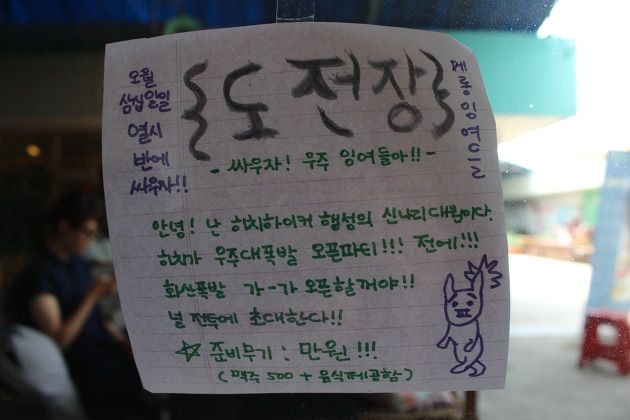 {도전장}
오월
삼십일일
열시
반에
싸우자!!
메롱잉여으로
- 싸우자! 우주 잉여들아!! -
안녕! 난 히치하이커 행성의 신나리대붐이다.
히치가 우주대폭발 오픈파티!!! 전에!!!
화산폭발 가-가 오픈할꺼야!!
널 전투에 초대한다!!
☆ 준비무기 : 만원!!!
(맥주 500 + 음식제공함)